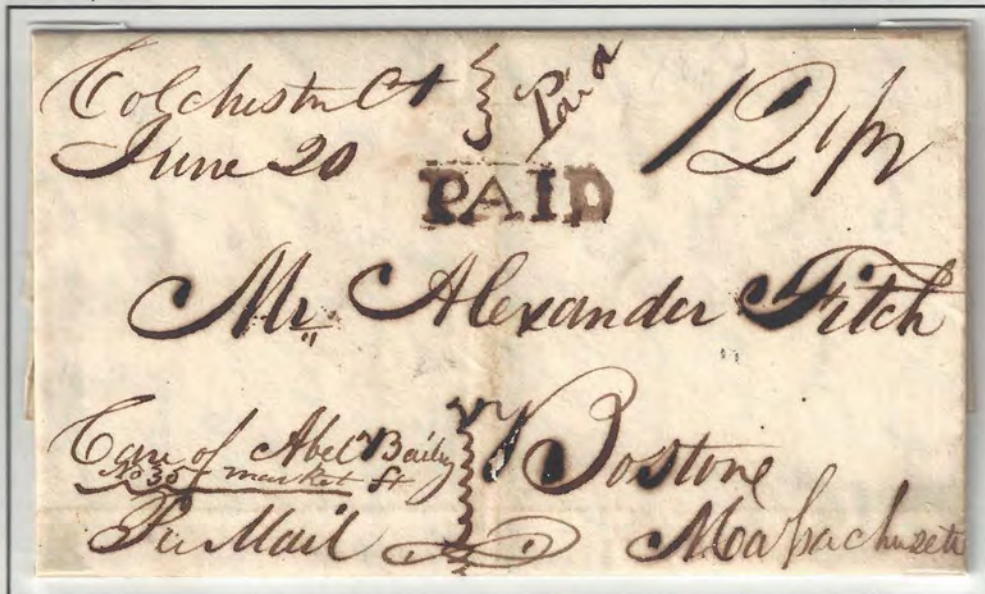 Colchester Ct Paid 12½
June 20
PAID
Mr. Alexander Fitch
Care of Abel Baily
No 35 market St
Per Mail
Bostone
Massachusetts